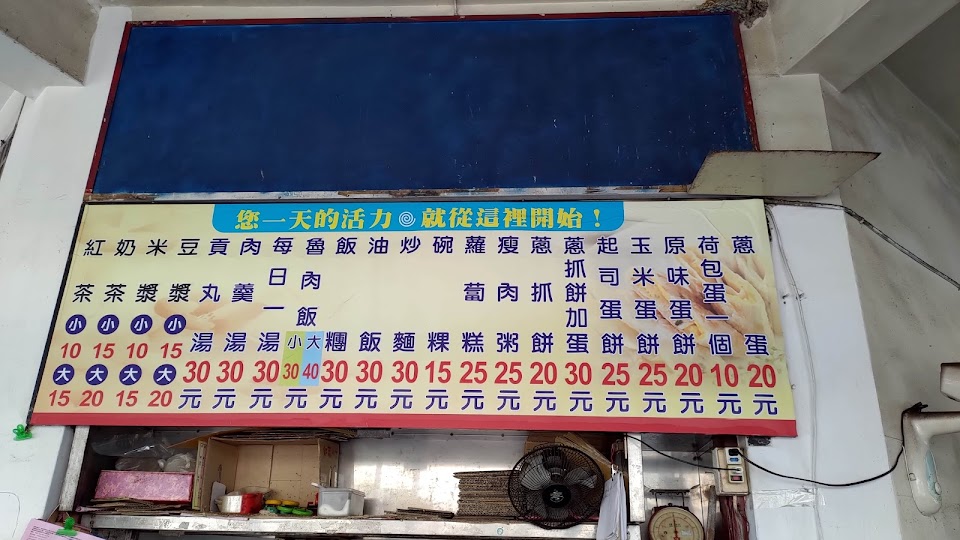 您一天的活力就從這裡開始！
蔥蛋20元
荷包蛋一個10元
原味蛋餅20元
玉米蛋餅25元
起司蛋餅25元
蔥抓餅加蛋30元
蔥抓餅20元
瘦肉粥25元
蘿蔔糕25元
碗粿15元
炒麵30元
油飯30元
飯糰30元
魯肉飯 小30 大40元
每日一湯30元
肉羹湯30元
貢丸湯30元
豆漿 小15 大20
米漿 小10 大15
奶茶 小15 大20
紅茶 小10 大15